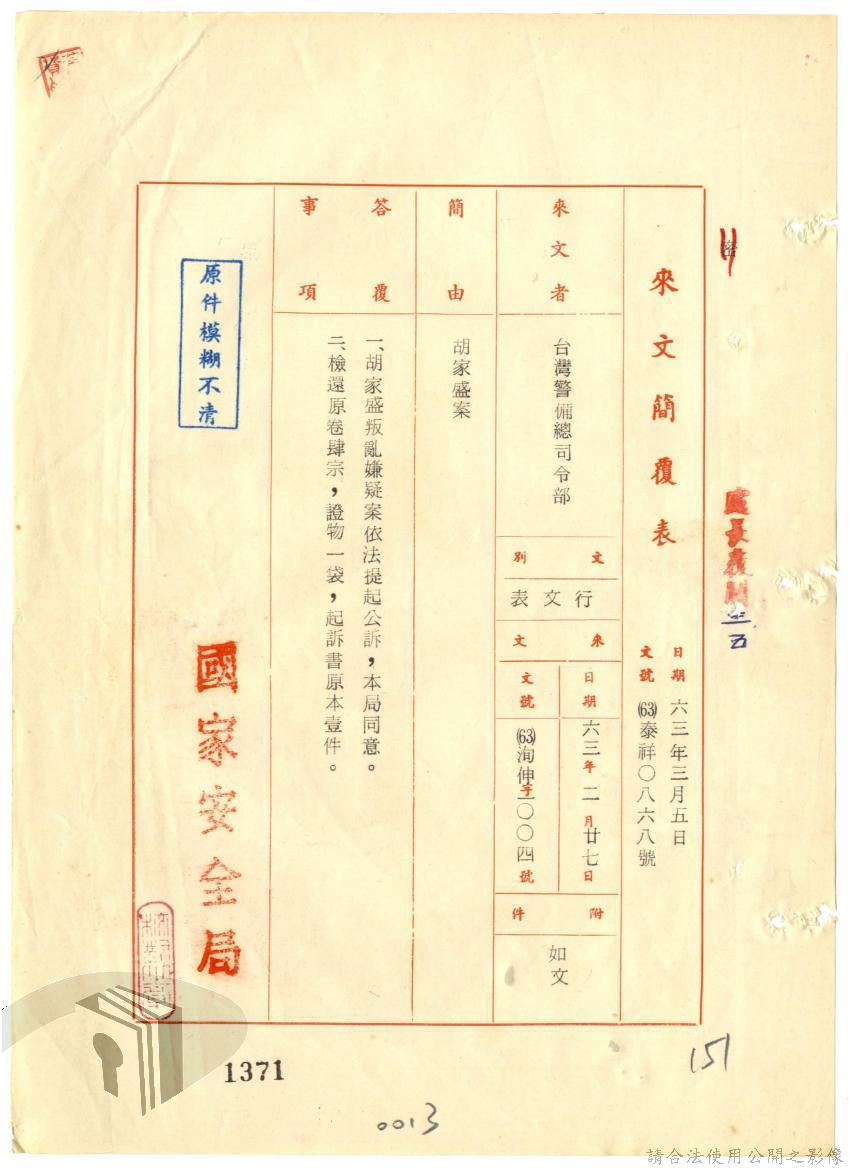 密
來文簡覆表
日期 六三年三月五日
文號 (63)泰祥〇八六八號
來文者
台灣警備總司令部
文別
行文表
來文
日期
六三年二月廿七日
文號
(63)洵伸字一〇〇四號
附件
如文
簡由
胡家盛案
答覆事項
一、胡家盛叛亂嫌疑案依法提起公訴,本局同意。
二、檢還原卷肆宗,證物一袋,起訴書原本壹件。
國家安全局
原件模糊不清
三五
151
1371
0013
請合法使用公開之影像